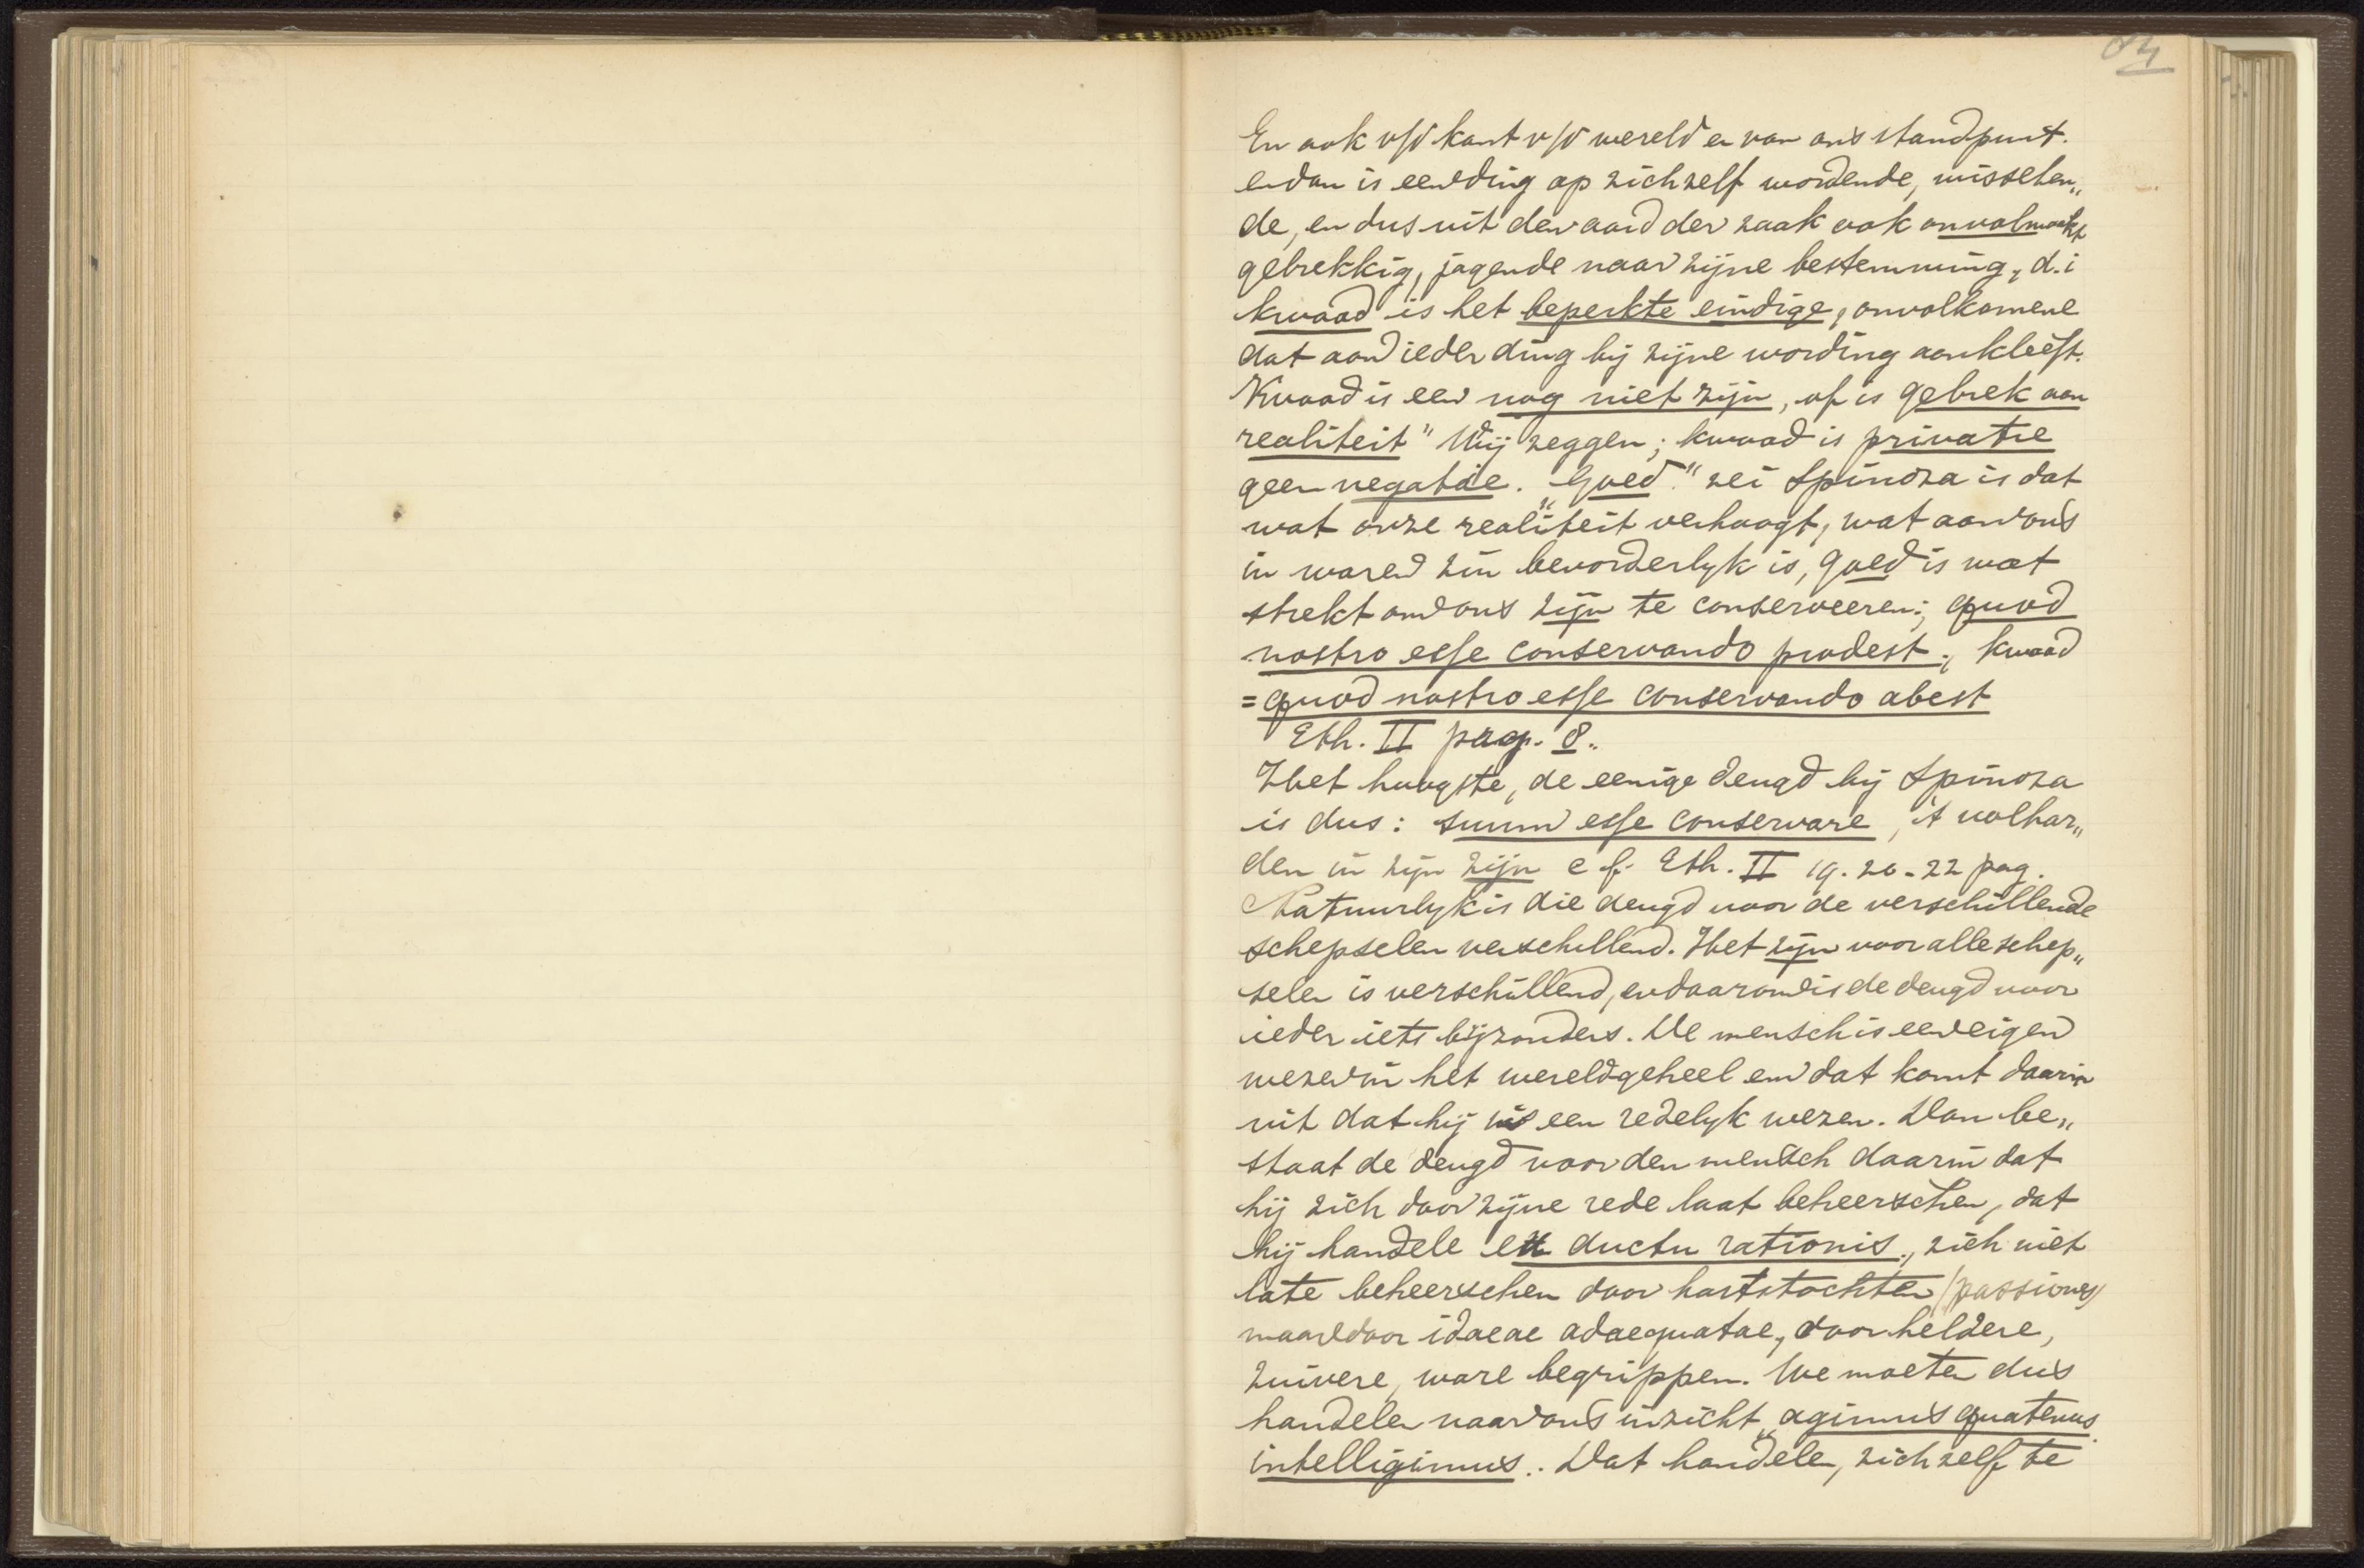 84
En ook v/d kant v/d wereld en van ons standpunt.
en dan is een ding op zichzelf wordende, wisselen„
de, en dus uit den aard der zaak ook onvolmaakt
gebrekkig, jagende naar zijne bestemming, d.i
kwaad is het beperkte eindige, onvolkomene
dat aan ieder ding bij zijne wording aankleeft.
Kwaad is een nog niet zijn, of is gebrek aan
realiteit" Wij zeggen; kwaad is privatie
geen negatie. „Goed" zei Spinoza is dat
wat onze realiteit verhoogt, wat aan ons
in waren zin bevorderlyk is, goed is wat
strekt om ons zijn te conserveeren; quod
nostro esse conservando prodest; kwaad
= quod nostro esse conservando abest
Eth. II pag. 8.
Het hoogste, de eenige deugd bij Spinoza
is dus: suum esse conservare, 't volhar„
den in zijn zijn cf. Eth. II 19. 20 - 22 pag.
Natuurlyk is die deugd voor de verschillende
schepselen verschillend. Het zijn voor alle schep„
selen is verschillend, en daarom is de deugd voor
ieder iets bijzonders. De mensch is een eigen
wezen in het wereldgeheel en dat komt daarin
uit dat hij is een redelyk wezen. Dan be„
staat de deugd voor den mensch daarin dat
hij zich door zijne rede laat beheerschen, dat
hij handele ex ductu rationis, zich niet
late beheerschen door hartstochten (passiones)
maar door idaeae adaequatae, door heldere,
zuivere, ware begrippen. We moeten dus
handelen naar ons inzicht „agimus quatenus
intelligimus. Dat handelen, zichzelf te